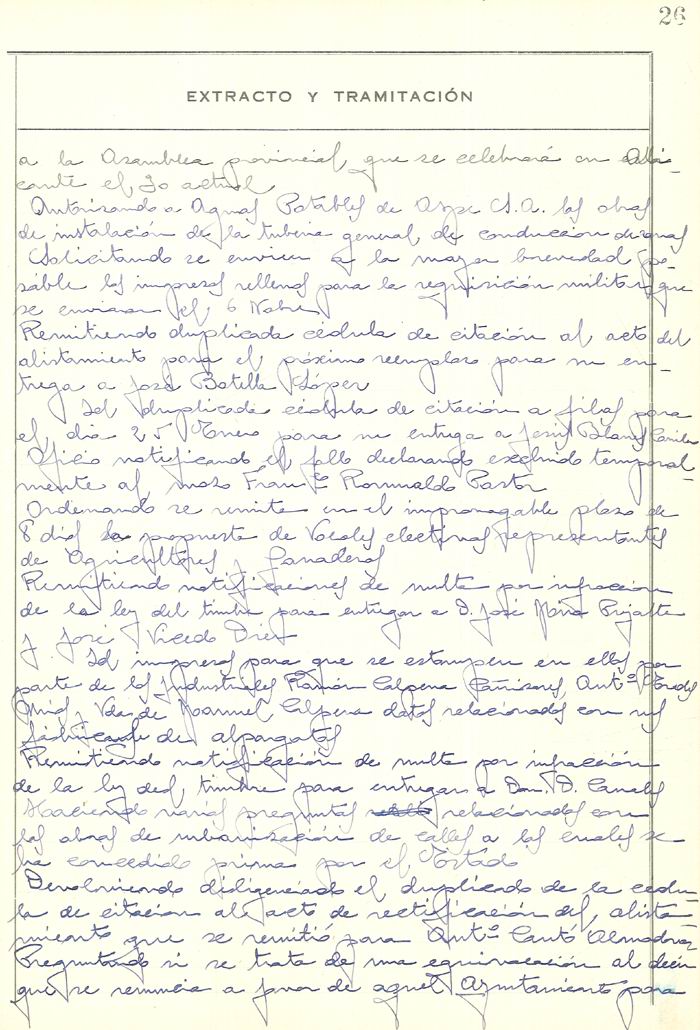 26
EXTRACTO Y TRAMITACIÓN
a la Asamblea provincial, que se celebrará en Ali-
cante el 30 actual
Autorizando a Aguas Potables de Aspe S.A. las obras
de instalación de la tuberia general, de conduccion de aguas
Solicitando se envien a la mayor brevedad po-
sible los impresos rellenos para la requisición militar, que
se enviaron el 6 Nobre
Remitiendo duplicada cédula de citación al acto del
alistamiento para el próximo reemplazo para su en-
trega a José Botella López
Id duplicada cédula de citación a filas para
el dia 25 Enero para su entrega a Jesus Blanes
Oficio notificando el fallo declarando excluido temporal-
mente al mozo Franco Romualdo Pastor
Ordenando se remita en el improrrogable plazo de
8 dias la propuesta de Vocales electivos representantes
de Agricultores y Ganaderos
Remitiendo notificaciones de multa por infraccion
de la ley del timbre para entregar a D. José Maria
y José Vicedo Diez
Id impresos para que se estampen en ellos por
parte de los Industriales Ramón Calpena Cañizares, Antº
y Vda de Manuel Calpena datos relacionados con sus
fabricante de alpargatas
Remitiendo notificación de multa por infracción
de la ley del timbre para entregar a Don. D. Canals
Haciendo varias preguntas relacionadas con
las obras de urbanización de calles a las cuales se
ha concedido prima por el Estado
Devolviendo diligenciado el duplicado de la cedu-
la de citacion al acto de rectificación del, alista-
miento que se remitió para Antº Cantó Almodovar
Preguntando si se trata de una equivocación al decir
que se renuncia a favor de aquel Ayuntamiento para